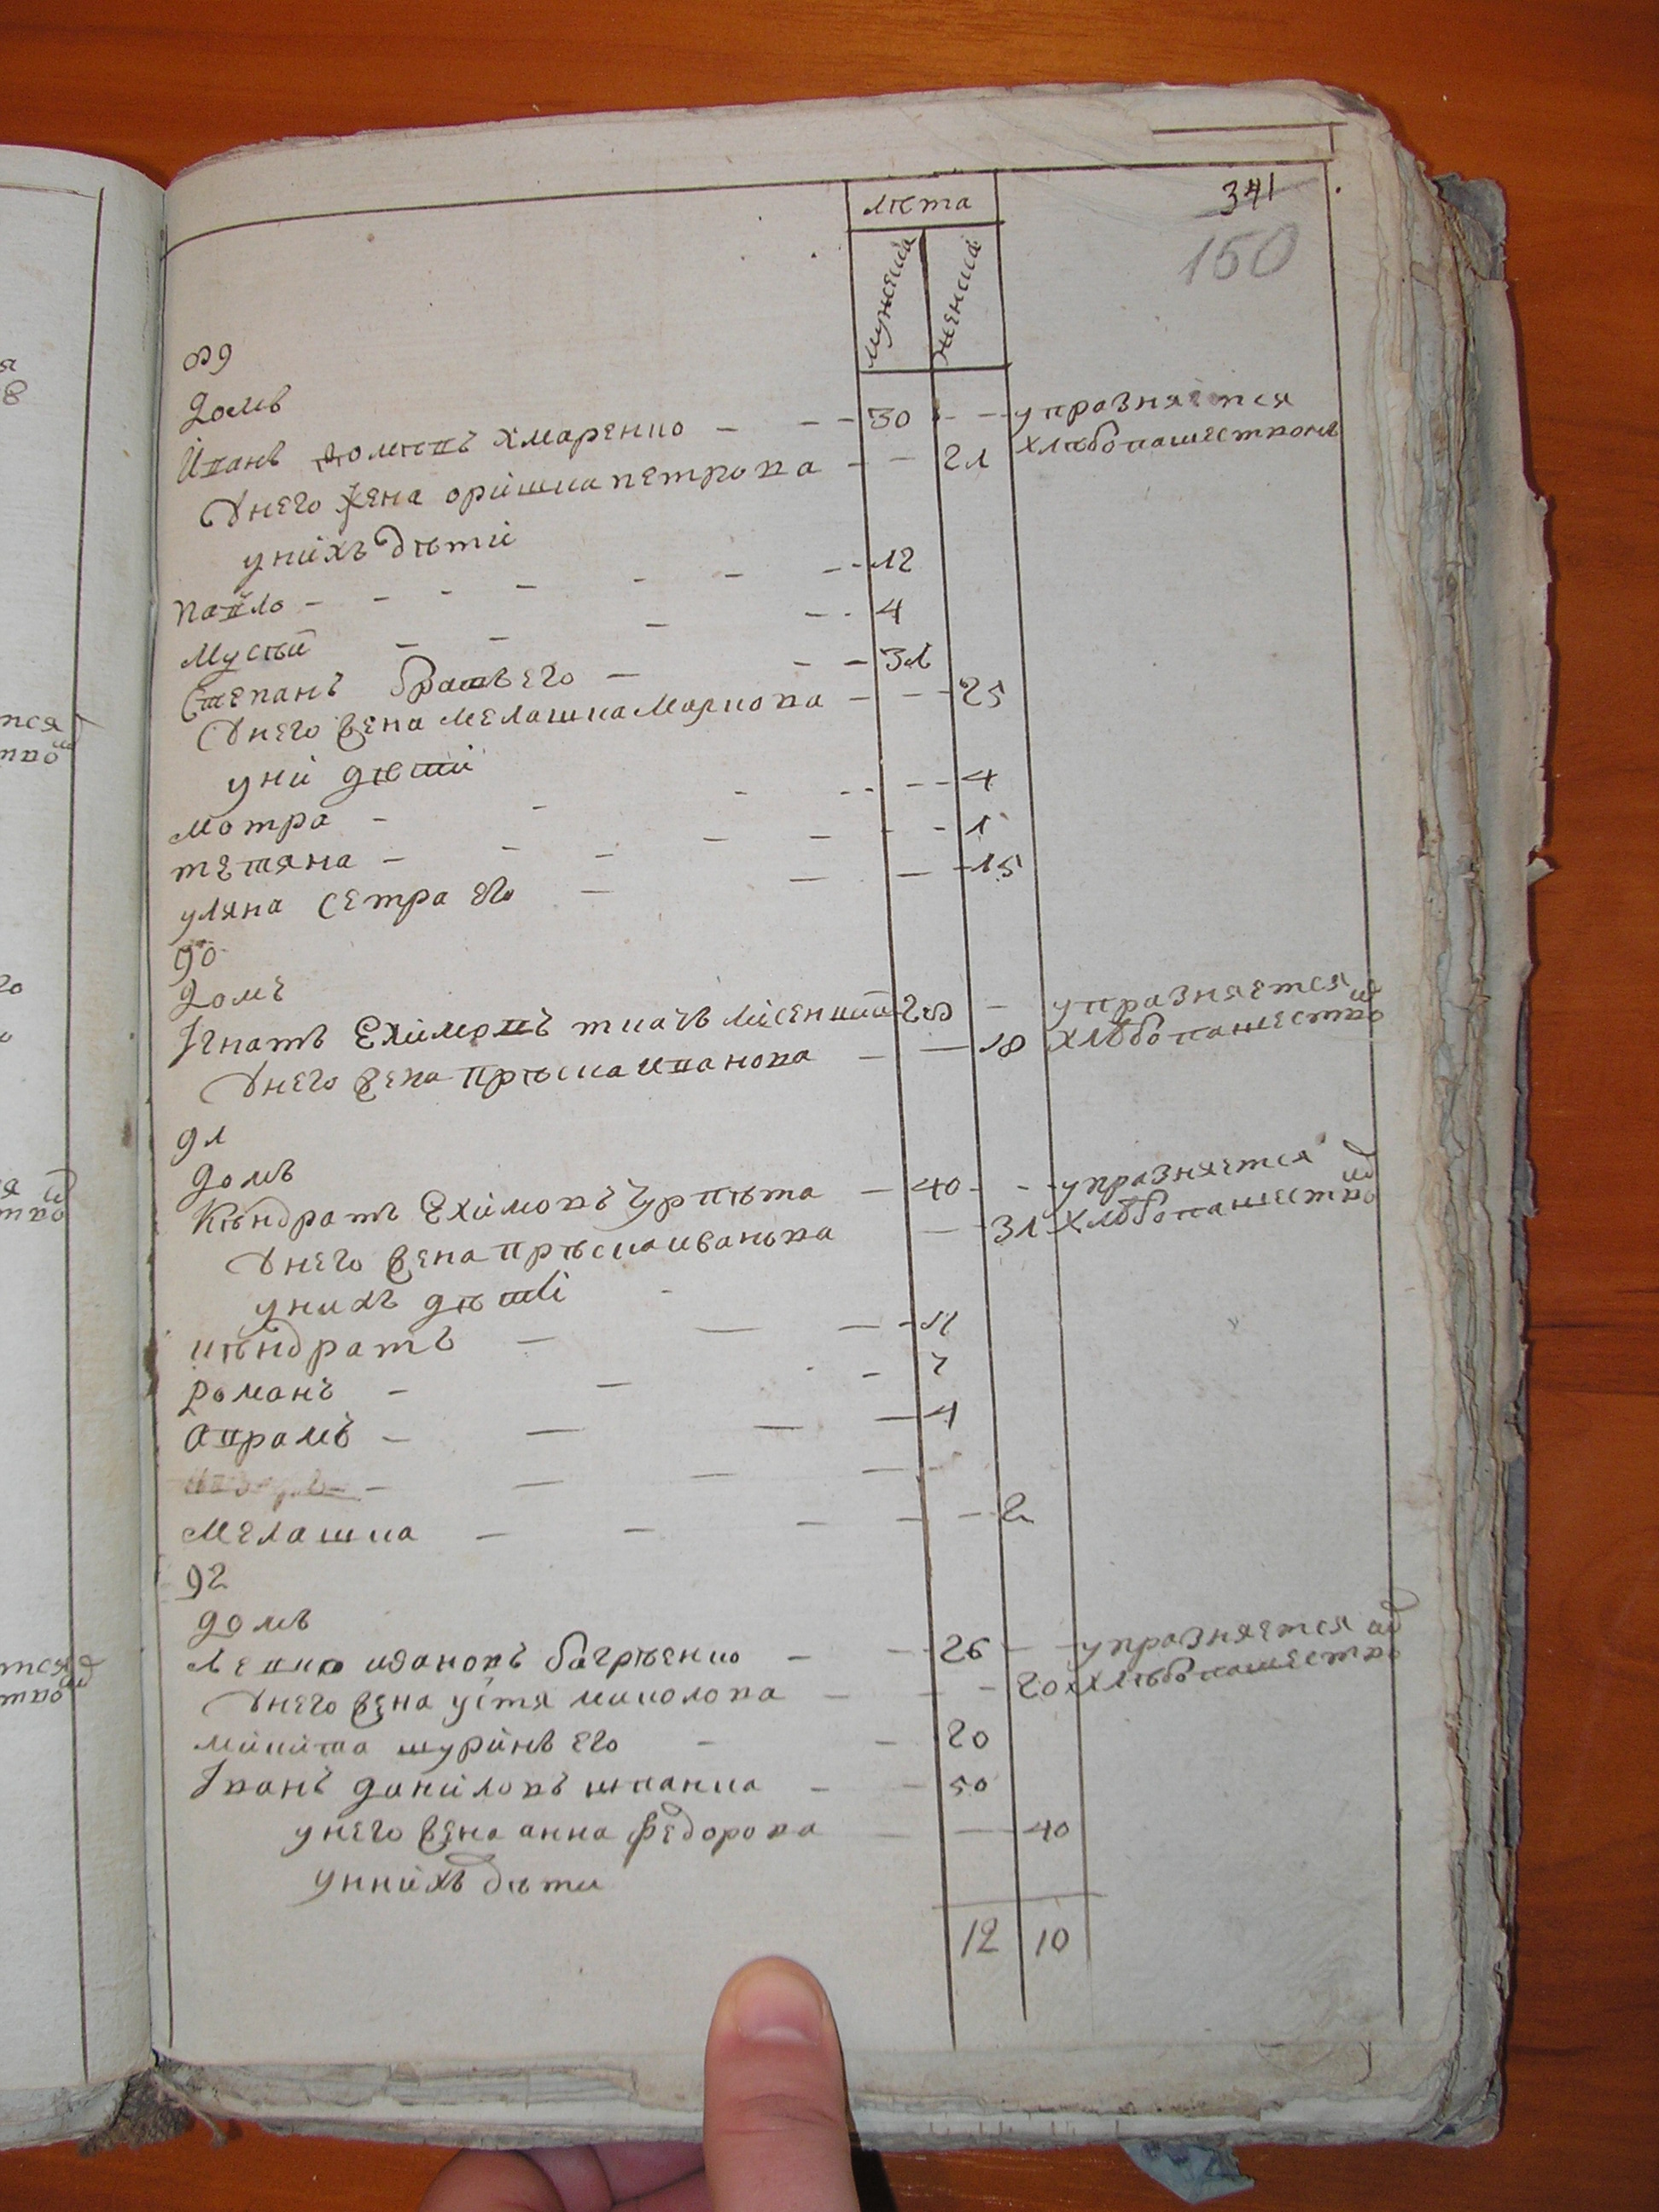 341
150
лѣта
мужеска
женска
89
домъ
Иванъ хмаренко 30 упразняется
Унего жена оришка петрова 21 хлѣбопашествомъ
унихъ дѣти
павло 12
Мусѣй 4
Степанъ братъ его 31
Унего жена мелашка Маркова 25
уни дѣти
мотра 4
тетяна 1
уляна сетра его 15
90
домъ
Игнатъ Ехимовъ ткачъ 28 упразняется
Унего жена прѣска иванова 18 хлѣбопашество
91
домъ
Кѣндратъ Ехимовъ 40 упразняется
Унего жена прѣска иванова 31 хлѣбопашество
унихъ дѣти
кѣндратъ 12
романъ 7
аврамъ 4
мелашка 2
92
домъ
Левко ивановъ багрѣенко 26 упразняется
Унего жена устя миколова 20 хлѣбопашество
микита шуринъ его 20
Иванъ даниловъ шпанка 50
унего жена анна федорова 40
уннихъ дѣти
12 10